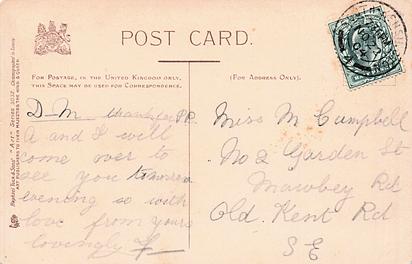 POST CARD.
FOR POSTAGE, IN THE UNITED KINGDOM ONLY,
THIS SPACE MAY BE USED FOR CORRESPONDENCE.
(FOR ADDRESS ONLY).
Raphael Tuck & Sons' "ART" SERIES
ART PUBLISHERS TO THEIR MAJESTIES THE KING & QUEEN
D-M P.P.C
A and I will
come over to
see you tomorrow
evening so with
love from yours
lovingly
Miss M Campbell
No 2 Garden St
Mawbey Rd
Old Kent Rd
S E